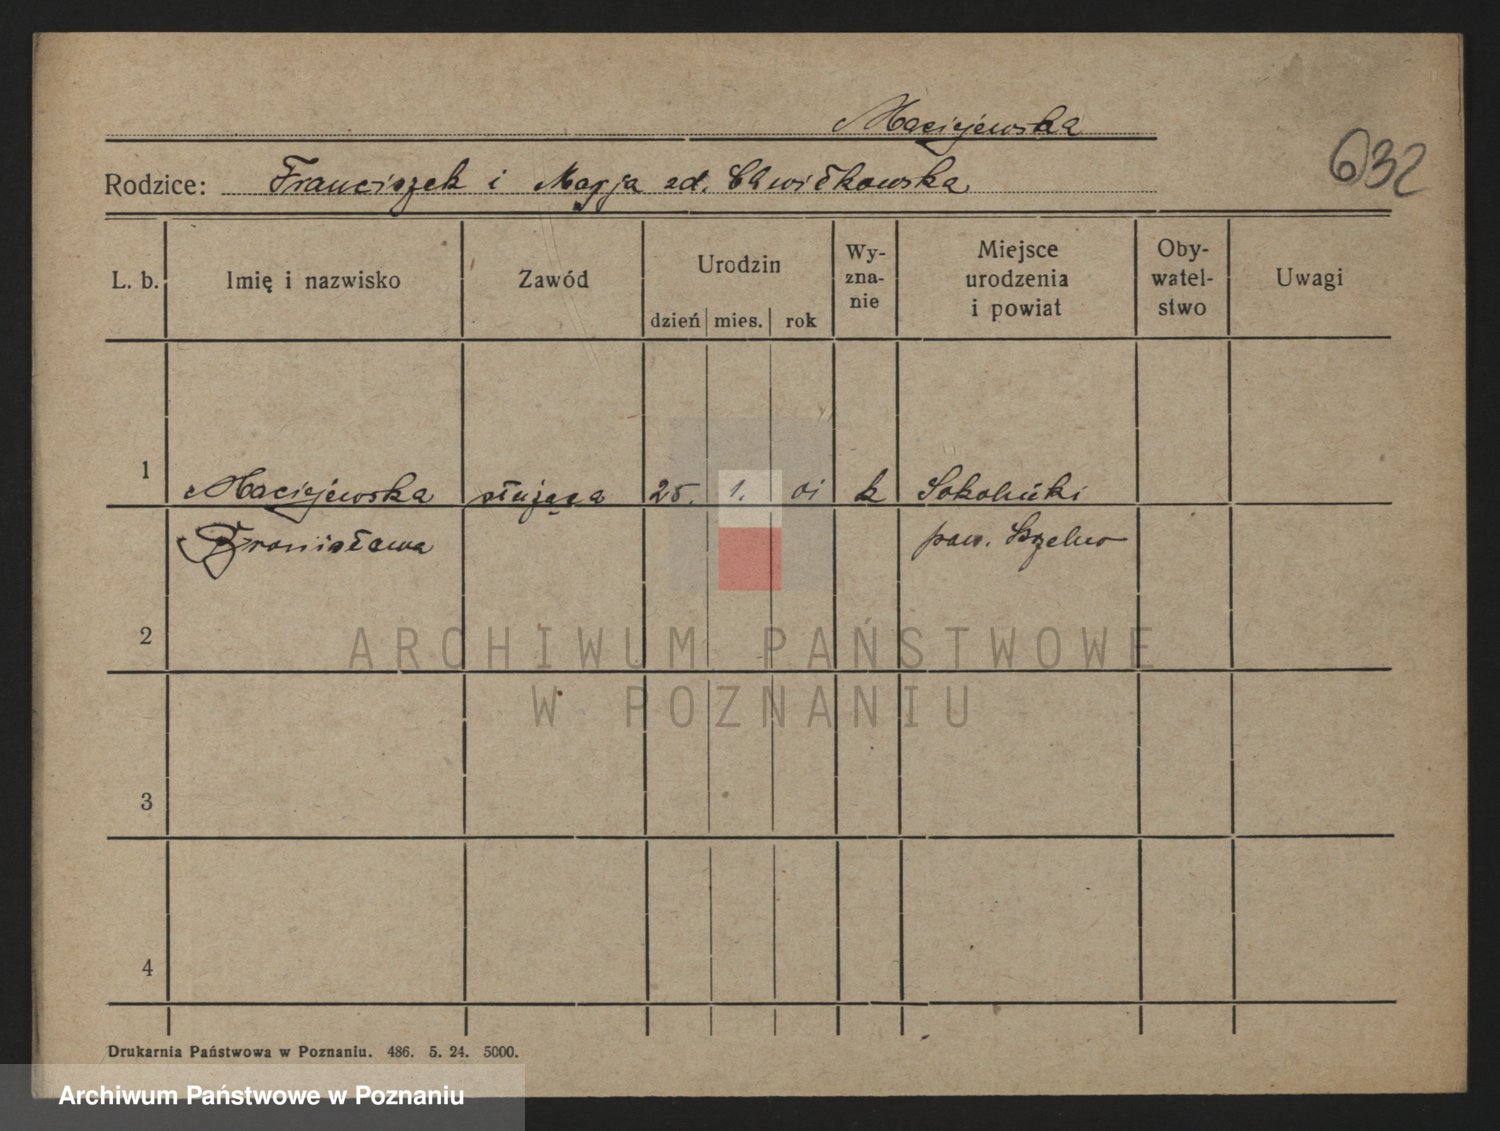 Maciejewska
632
Rodzice: Franciszek i Marja zd. Ćwikowska
L. b. Imię i nazwisko Zawód Urodzin dzień mies. rok Wy-zna-nie Miejsce urodzenia i powiat Oby-watel-stwo Uwagi
1 Maciejewska służąca 25. 1. 01 k Sokolniki
Bronisława pow.
2
ARCHIWUM PAŃSTWOWE
W POZNANIU
3
4
Drukarnia Państwowa w Poznaniu. 486. 5. 24. 5000.
Archiwum Państwowe w Poznaniu